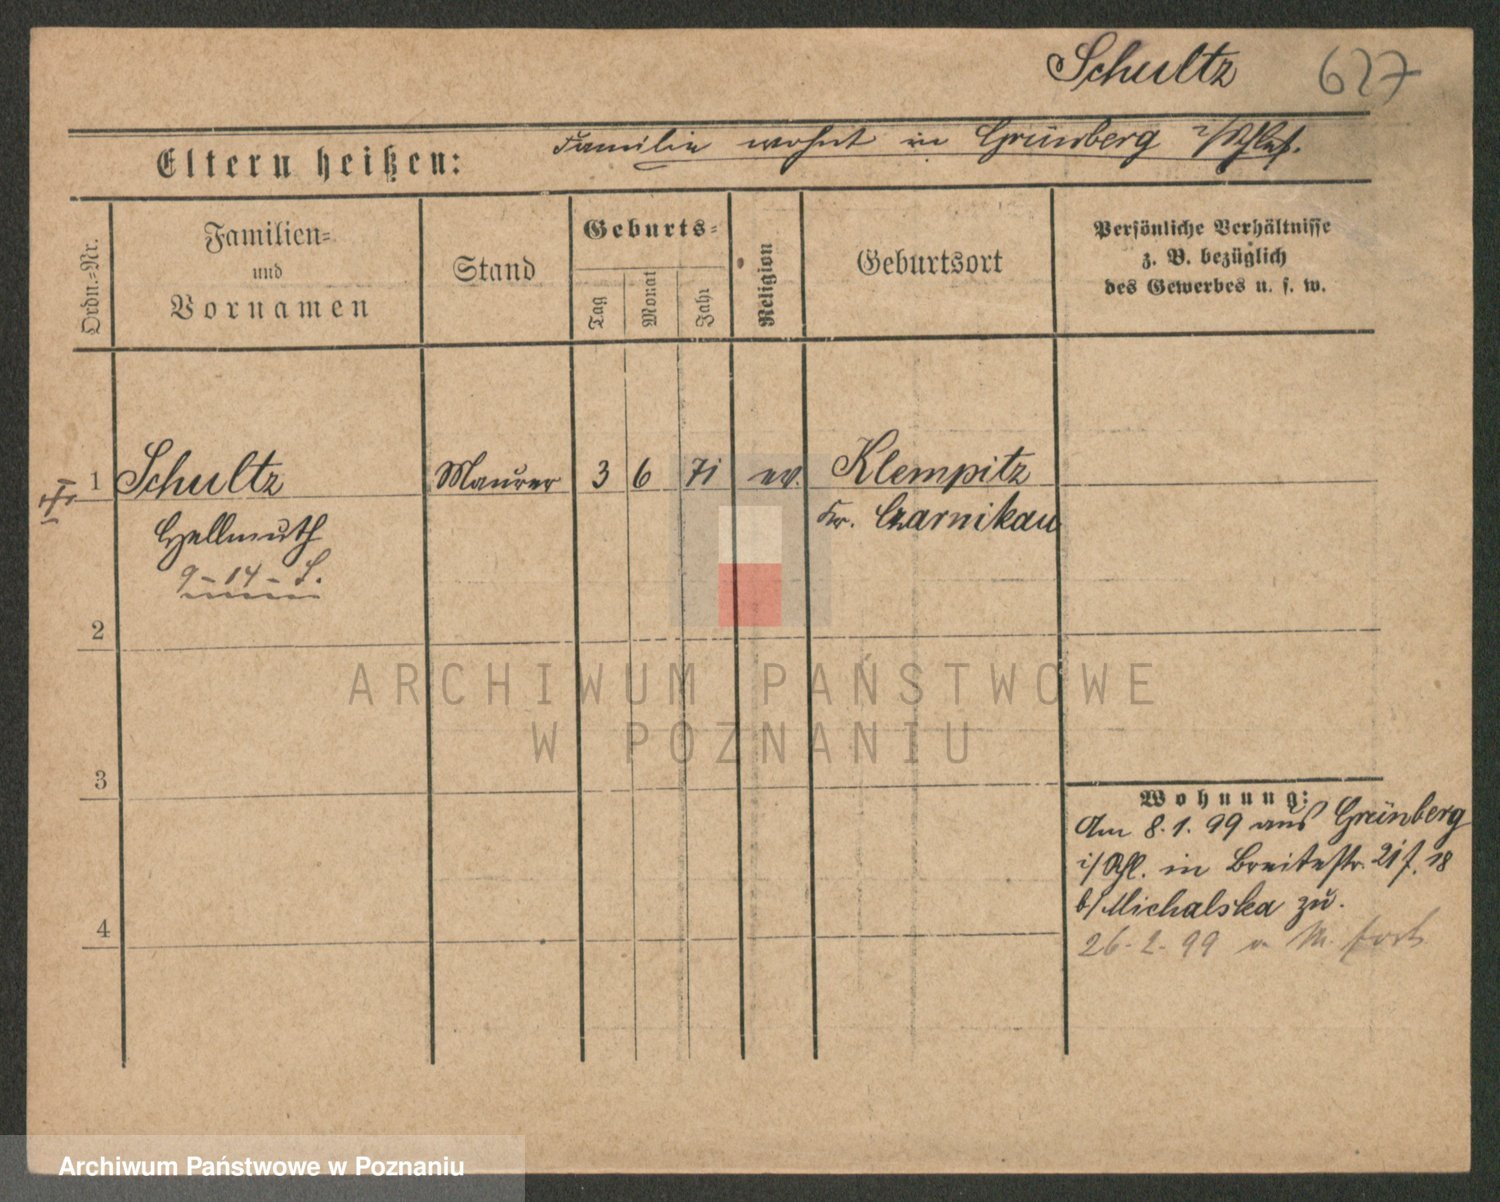 Schultz 627
Familie wohnt in Grünberg i/Schles.
Eltern heißen:
Ordn.=Nr.
Familien=
und
Vornamen
Stand
Geburts=
Tag
Monat
Jahr
Religion
Geburtsort
Persönliche Verhältnisse
z. B. bezüglich
des Gewerbes u. s. w.
1 Schultz Maurer 3 6 71 ev. Klempitz
Hellmuth Kr. Czarnikau
9-14-
2
3
4
Wohnung:
Am 8.1.99 aus Grünberg
i/Schl. in Breitestr. 18
b/ Michalska zu.
26-2-99 fort
ARCHIWUM PAŃSTWOWE
W POZNANIU
Archiwum Państwowe w Poznaniu